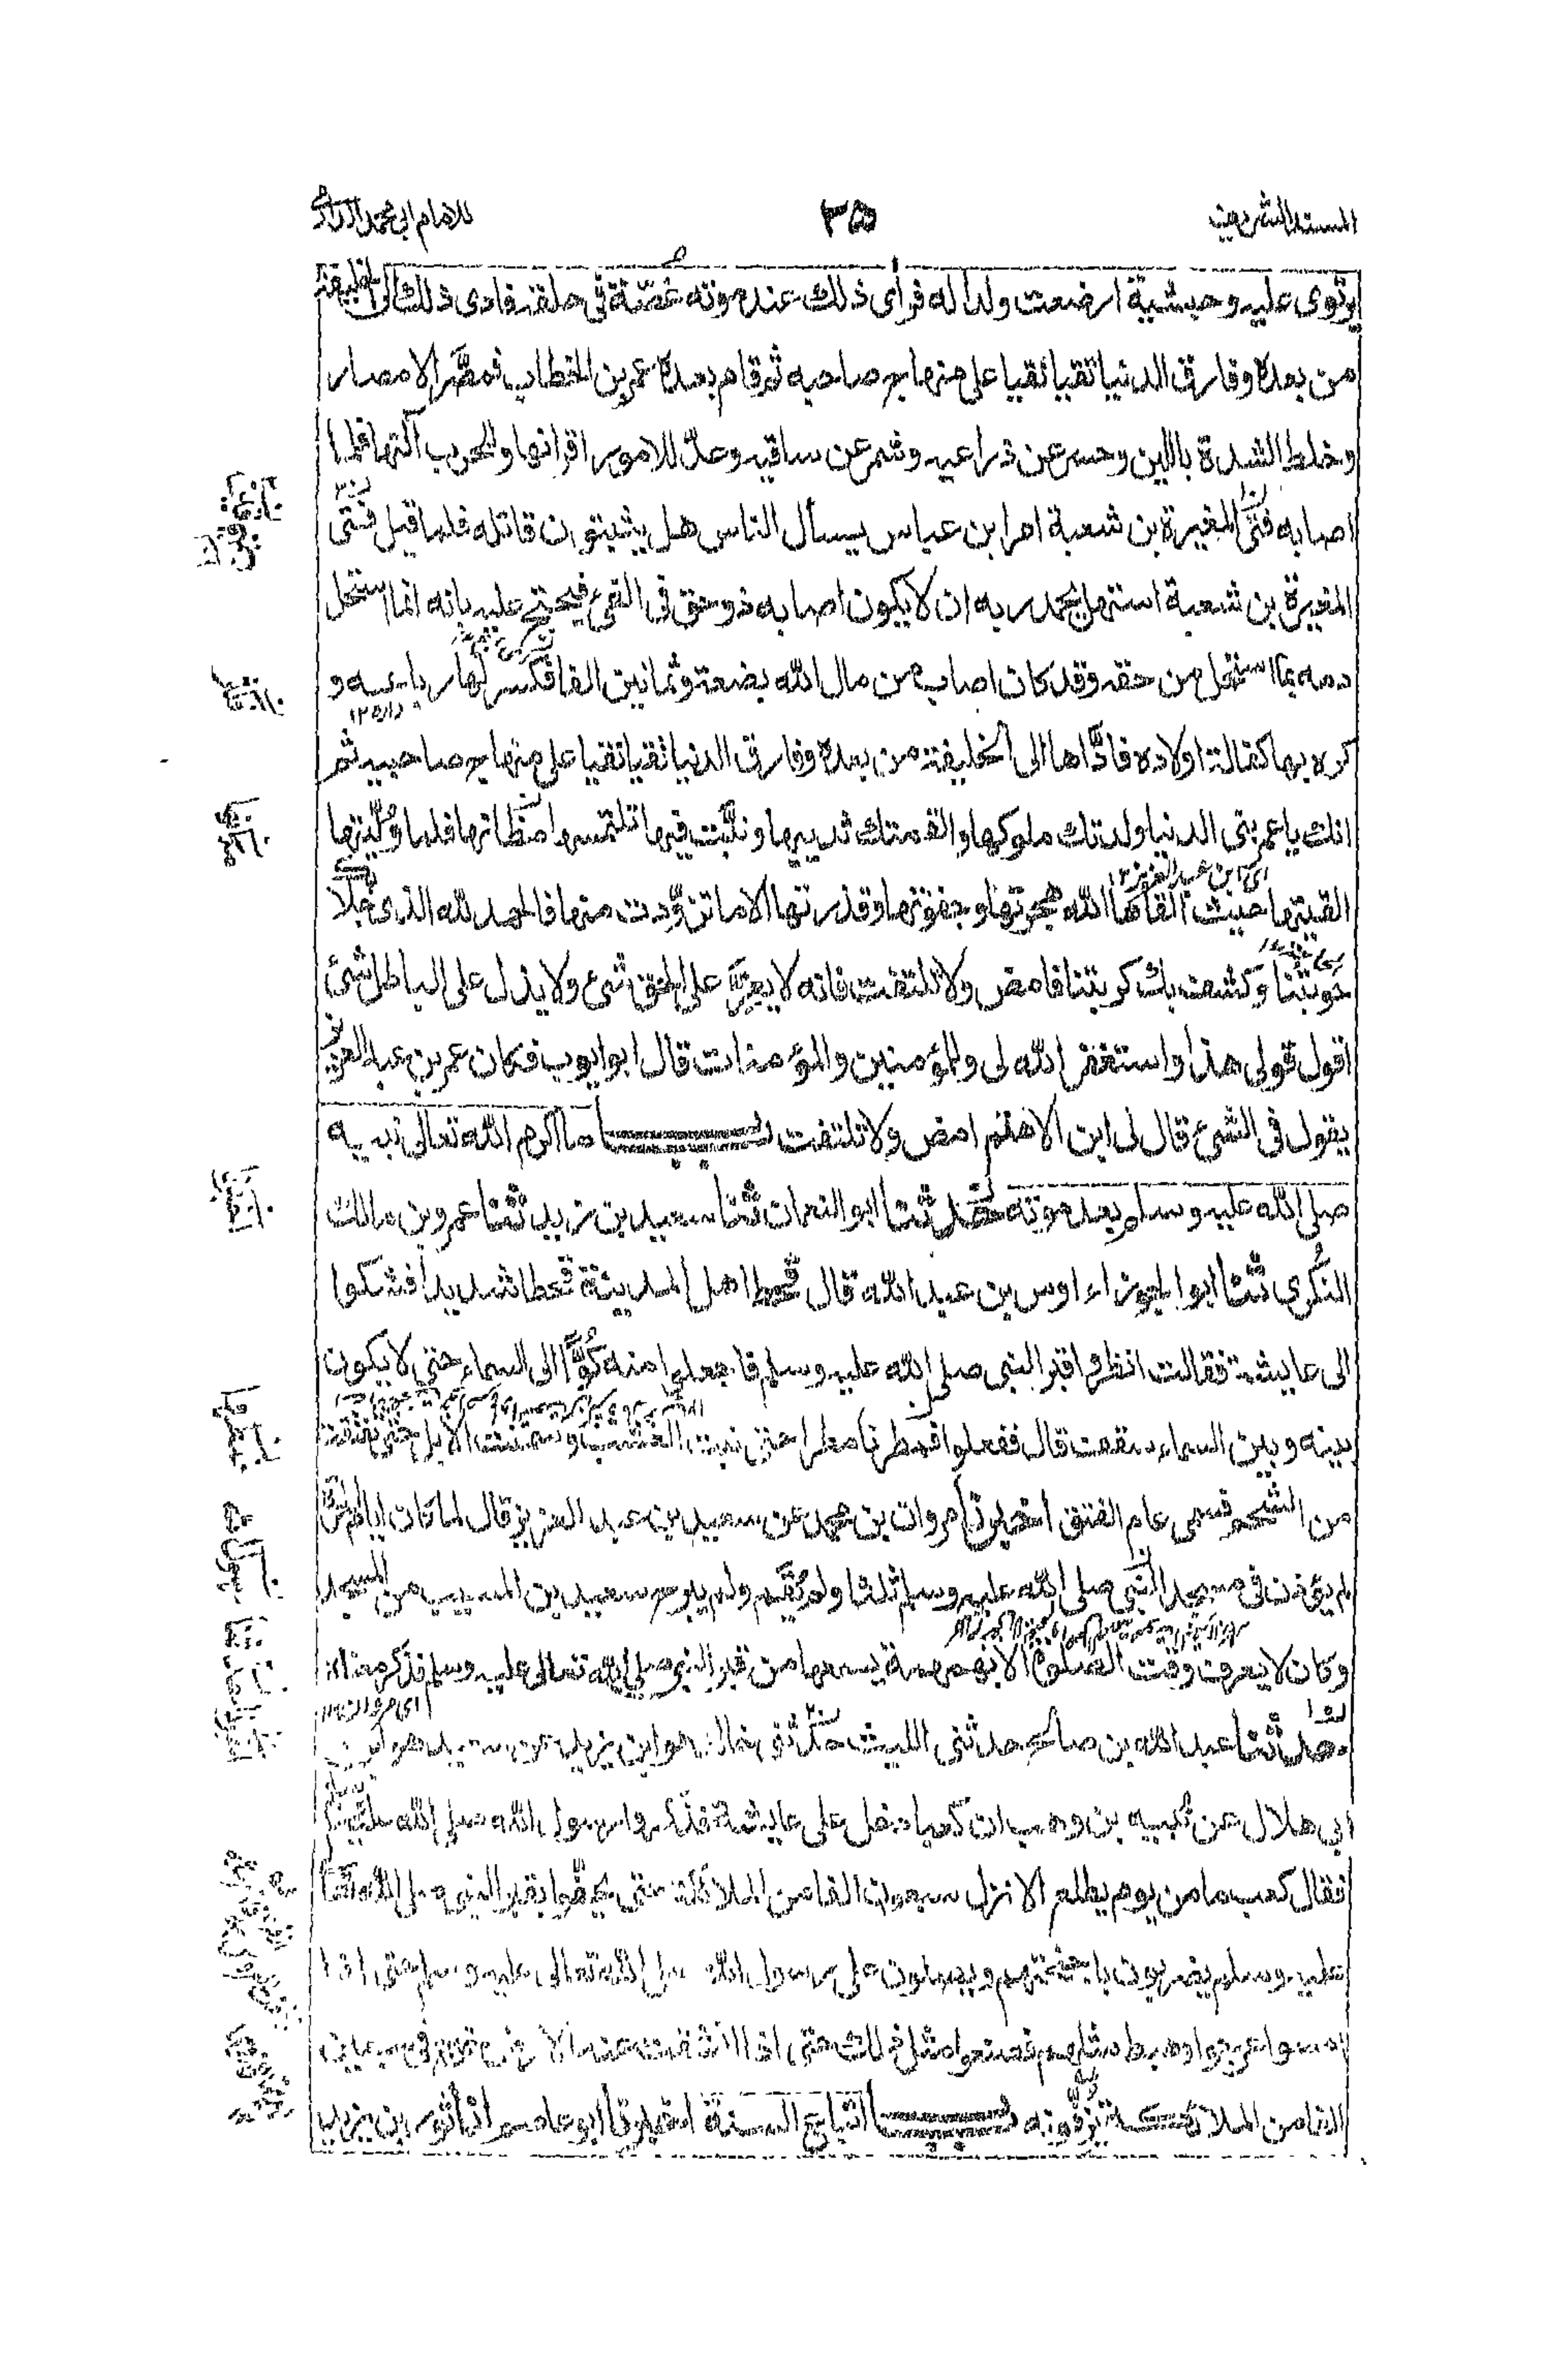 المسند الشريف
٣٥
للامام ابي محمد الدارمي
يرتوى عليه وحبشية ارضعت ولدا له فرأى ذلك عند موته غصة في حلقه فادى ذلك الى الخليفة
من بعده وفارق الدنيا تقيا نقيا على منهاج صاحبه ثم قام بعده عمر بن الخطاب فمصّر الامصار
وخلط الشدة باللين وحسر عن ذراعيه وشمر عن ساقيه وعدّ للامور اقرانها وللحرب آلتها فلما
اصابه فتى المغيرة بن شعبة امر ابن عباس يسأل الناس هل يثبتون قاتله فلما قيل فتى
المغيرة بن شعبة استهل بحمد ربه ان لا يكون اصابه ذو حق في الفيء فيحتج عليه بانه انما استحل
دمه بما استحل من حقه وقد كان اصاب من مال الله بضعة وثمانين الفا فكسر لها رباعه و
كره بها كفالة اولاده فادّاها الى الخليفة من بعده وفارق الدنيا تقيا نقيا على منهاج صاحبيه ثم
انك يا عمر بنى الدنيا ولدتك ملوكها والقمتك ثدييها ونبتّ فيها تلتمسها مظانها فلما وُلّيتها
اى ابن عبد العزيز ١٢
القيتها حيث القاها الله هجرتها وجفوتها وقذرتها الا ما تزودت منها فالحمد لله الذى جلا
حوبتنا وكشف بك كربتنا فامض ولا تلتفت فانه لا يعز على الحق شيء ولا يذل على الباطل شئ
اقول قولى هذا واستغفر الله لى وللمؤمنين والمؤمنات قال ابو ايوب فكان عمر بن عبد العزيز
يقول في الشيء قال لى ابن الاهتم امض ولا تلتفت باب ما اكرم الله تعالى نبيه
صلى الله عليه وسلم بعد موته حدثنا ابو النعمان ثنا سعيد بن زيد ثنا عمرو بن مالك
النُكرى ثنا ابو الجوزاء اوس بن عبد الله قال قحط اهل المدينة قحطا شديدا فشكوا
الى عايشة فقالت انظروا قبر النبى صلى الله عليه وسلم فاجعلوا منه كُوًّا الى السماء حتى لا يكون
بينه وبين السماء سقف قال ففعلوا فمطرنا مطرا حتى نبت العشب وسمنت الابل حتى تفتقت
من الشحم فسمى عام الفتق اخبرنا مروان بن محمد عن سعيد بن عبد العزيز قال لما كان ايام الحرة
لم يؤذن في مسجد النبي صلى الله عليه وسلم ثلثا ولم يُقَم ولم يبرح سعيد بن المسيب من المسجد
وكان لا يعرف وقت الصلوة الا بهمهمة يسمعها من قبر النبي صلى الله تعالى عليه وسلم فذكر معناه
حدثنا عبد الله بن صالح حدثنى الليث حدثنى خالد هو ابن يزيد عن سعيد هو ابن
ابى هلال عن نُبيه بن وهب ان كعبا دخل على عايشة فذكروا رسول الله صلى الله عليه
فقال كعب ما من يوم يطلع الا نزل سبعون الفا من الملائكة حتى يحفّوا بقبر النبي صلى الله
عليه وسلم يضربون باجنحتهم ويصلون على رسول الله صلى الله تعالى عليه وسلم حتى اذا
امسوا عرجوا وهبط مثلهم فصنعوا مثل ذلك حتى اذا انشقت عنه الارض خرج في سبعين
الفا من الملائكة يزفّونه باب اتباع السنة اخبرنا ابو عاصم انا ثور بن يزيد